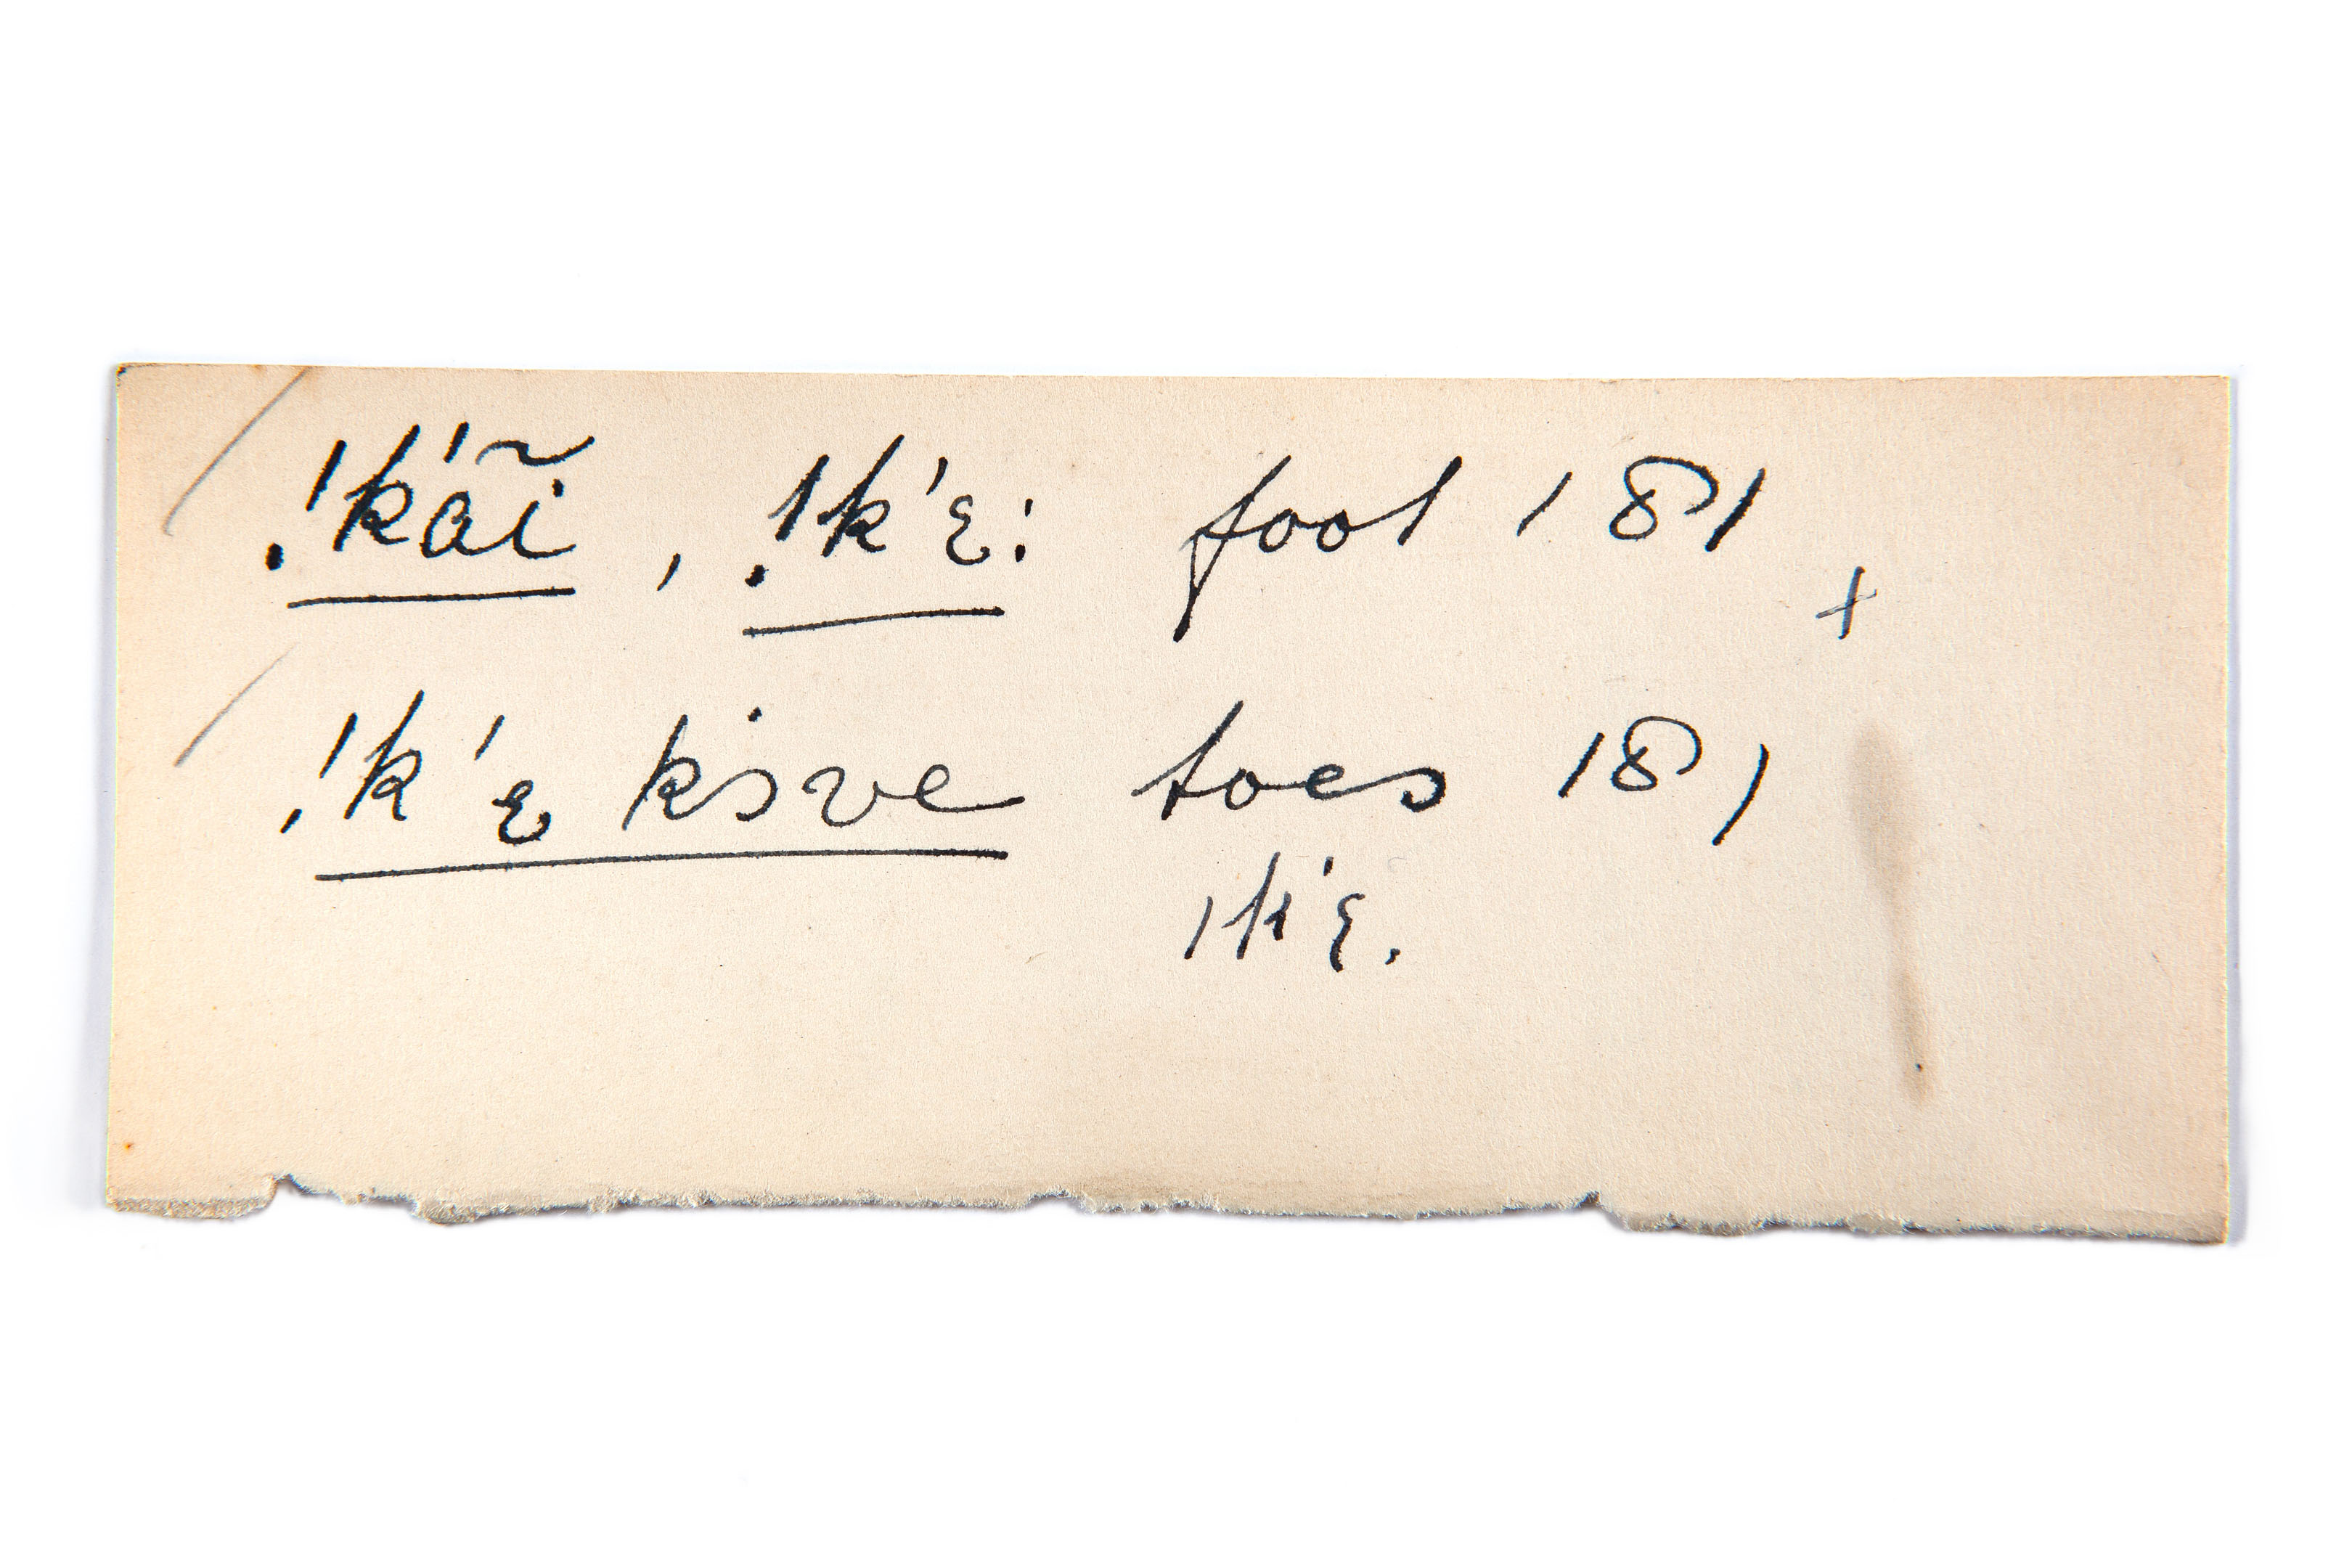 !k'ãĩ, !k'ɛ: foot 181 +
!k'ɛ k'sve toes 181
!k'ɛ.